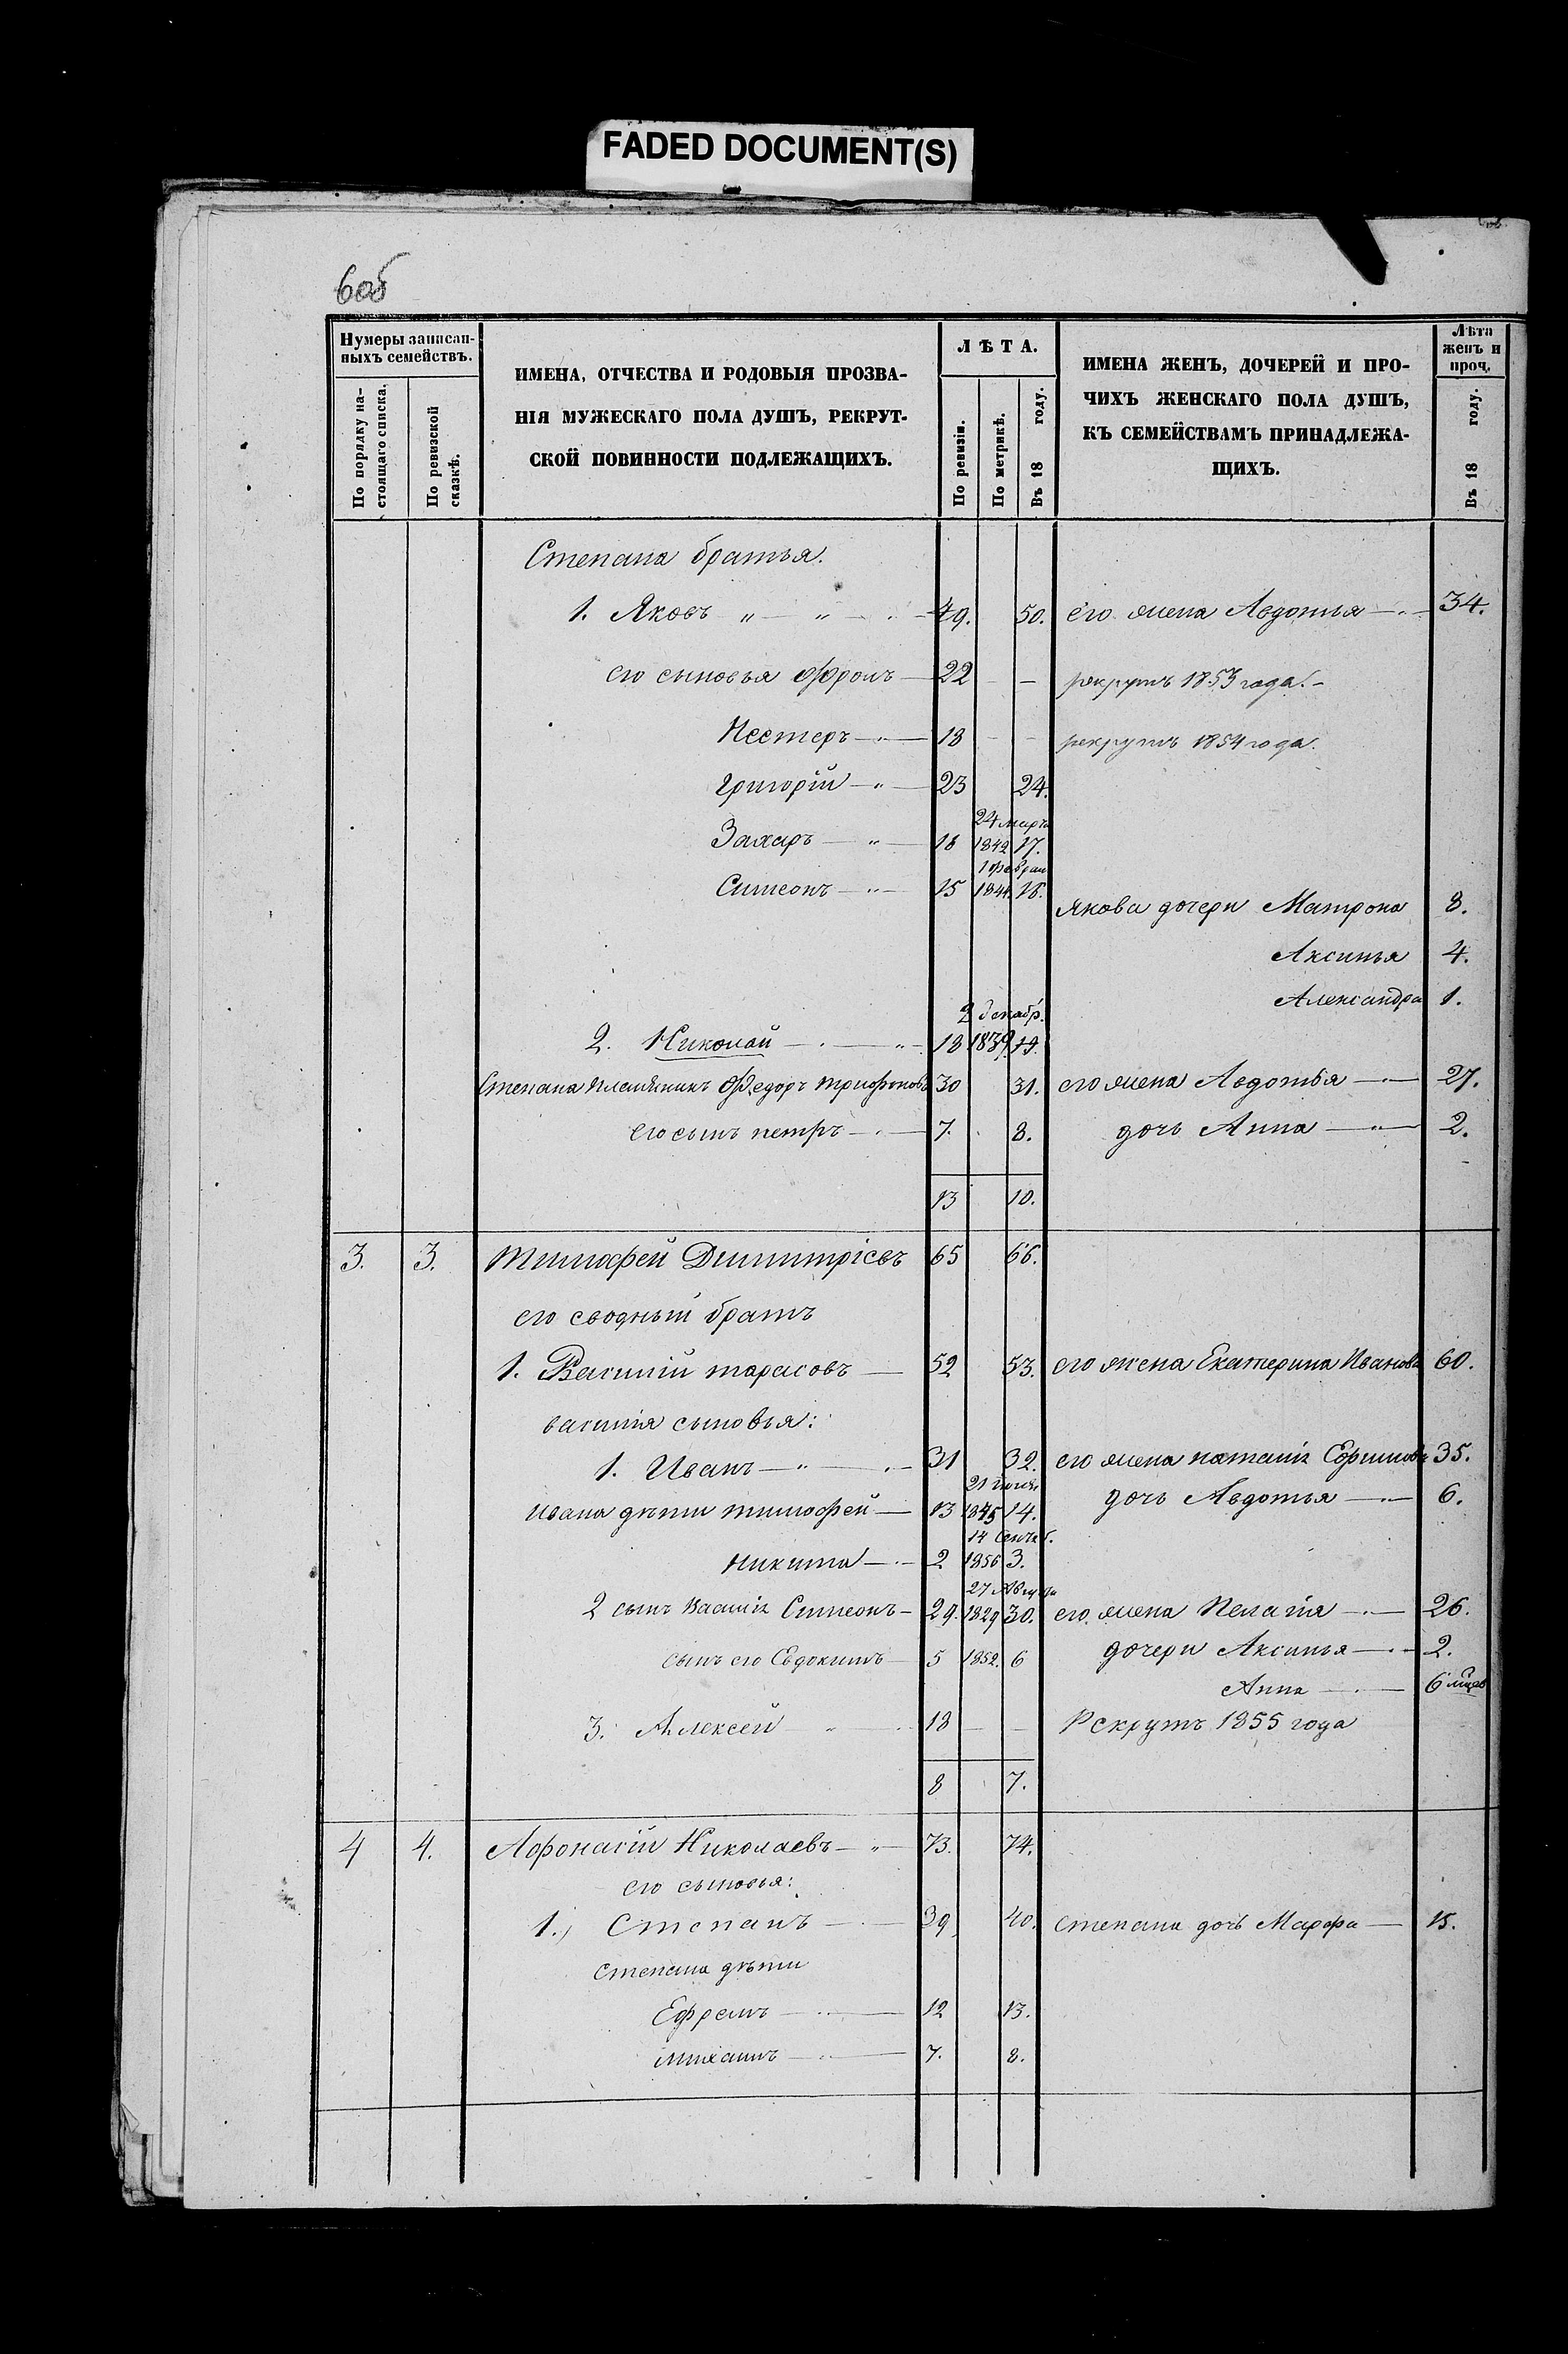 FADED DOCUMENT(S)
6об
Нумеры записан-
ныхъ семействъ.
По порядку на-
стоящаго списка.
По ревизской
сказкѣ.
ИМЕНА, ОТЧЕСТВА И РОДОВЫЯ ПРОЗВА-
НІЯ МУЖЕСКАГО ПОЛА ДУШЪ, РЕКРУТ-
СКОЙ ПОВИННОСТИ ПОДЛЕЖАЩИХЪ.
ЛѢТА.
По ревизіи.
По метрикѣ.
Въ 18 году.
ИМЕНА ЖЕНЪ, ДОЧЕРЕЙ И ПРО-
ЧИХЪ ЖЕНСКАГО ПОЛА ДУШЪ,
КЪ СЕМЕЙСТВАМЪ ПРИНАДЛЕЖА-
ЩИХЪ.
Лѣта
женъ и
проч.
Въ 18 году.
Степана братья.
1. Яковъ 49. 50. его жена Авдотья 34.
его сыновья Фролъ 22 – рекрутъ 1853 года.
Нестеръ 18 – – рекрутъ 1854 года.
Григорій 23 24.
24 марта
Захаръ 16 1842 17.
1 феврал
Симеонъ 15 1844. 16.
Якова дочери Матрона 8.
Аксинья 4.
Александра 1.
2 декабр.
2. Николай 18 1839 19.
Степана племянникъ Федоръ Трифоновъ 30 31. его жена Авдотья 27.
его сынъ петръ 7. 8. дочь Анна 2.
13 10.
3. 3. Тимофей Димитріевъ 65 66.
его сводный братъ
1. Василій тарасовъ 52 53. его жена Екатерина Иванова 60.
василія сыновья:
1. Иванъ 31 32. его жена наталія Ефимова 35.
Ивана дѣти тимофей 13 1845 14. дочь Авдотья 6.
14 Сентяб.
Никита 2 1856 3.
27 Августа
2 сынъ Василія Симеонъ 29. 1829 30. его жена Пелагія 26.
сынъ его Евдокимъ 5 1852. 6 дочери Аксинья 2.
Анна 6 мѣсяц
3. Алексей 18 – – Рекрутъ 1855 года
8 7.
4 4. Афонасій Николаевъ 73. 74.
его сыновья:
1. Степанъ 39 40. степана дочь Марфа 15.
степана дѣти
Ефремъ 12 13.
михаилъ 7. 8.